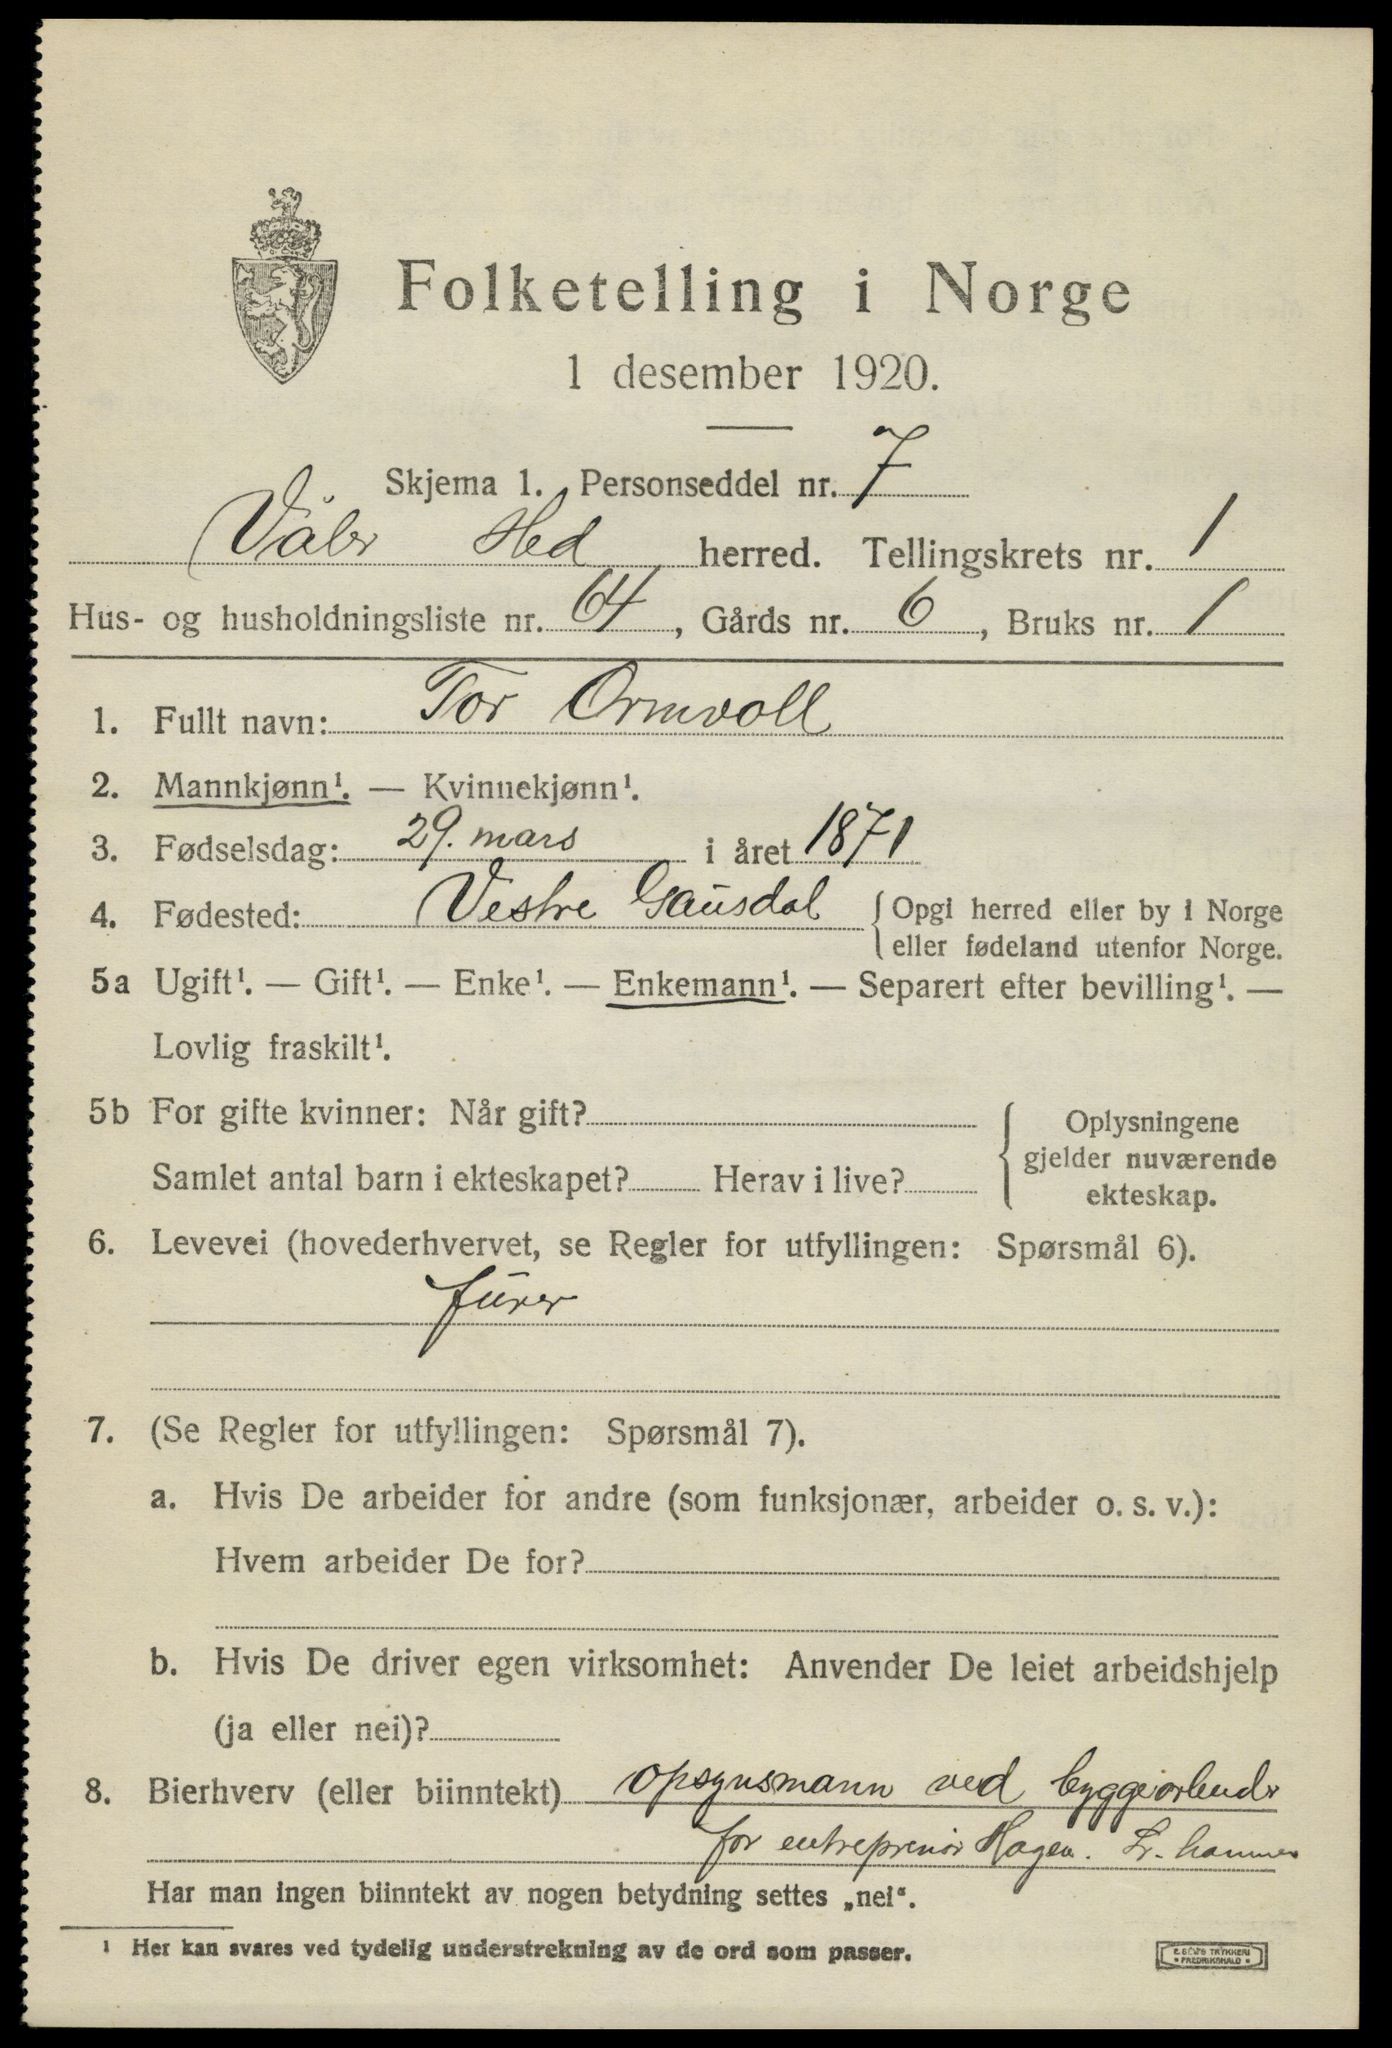 Folketelling i Norge
1 desember 1920.
Skjema 1. Personseddel nr. 7
Våler Hed herred. Tellingskrets nr. 1
Hus- og husholdningsliste nr. 64, Gårds nr. 6, Bruks nr. 1
1. Fullt navn: Tor Ormvoll
2. Mannkjønn¹. — Kvinnekjønn¹.
3. Fødselsdag: 29. mars i året 1871
4. Fødested: Vestre Gausdal { Opgi herred eller by i Norge
eller fødeland utenfor Norge.
5a Ugift¹. — Gift¹. — Enke¹. — Enkemann¹. — Separert efter bevilling¹. —
Lovlig fraskilt¹.
5b For gifte kvinner: Når gift?
Samlet antal barn i ekteskapet? Herav i live?
{ Oplysningene
gjelder nuværende
ekteskap.
6. Levevei (hovederhvervet, se Regler for utfyllingen: Spørsmål 6).
fürer
7. (Se Regler for utfyllingen: Spørsmål 7).
a. Hvis De arbeider for andre (som funksjonær, arbeider o. s. v.):
Hvem arbeider De for?
b. Hvis De driver egen virksomhet: Anvender De leiet arbeidshjelp
(ja eller nei)?
8. Bierhverv (eller biinntekt) opsynsmann ved byggearbeide
for entreprenör Hagen. Lr. hammer
Har man ingen biinntekt av nogen betydning settes „nei“.
¹ Her kan svares ved tydelig understrekning av de ord som passer.
E. SEM'S TRYKKERI
• FREDRIKSHALD •